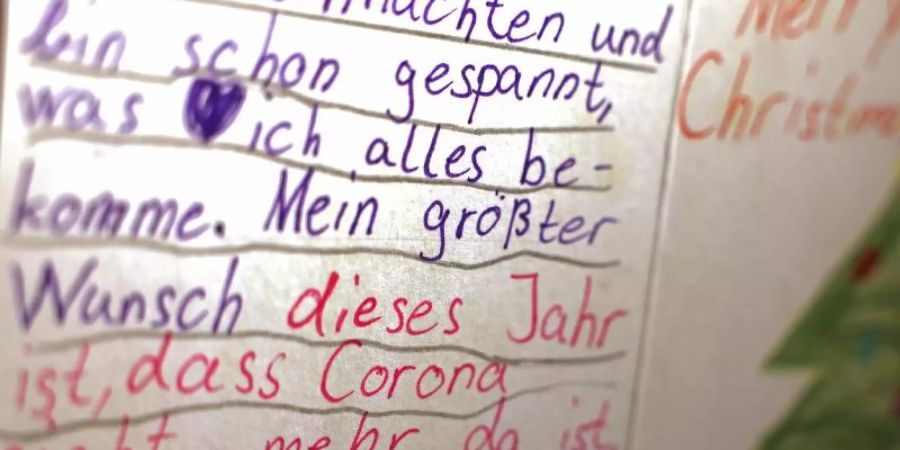 und
bin schon gespannt,
was ich alles be-
komme. Mein größter
Wunsch dieses Jahr
ist, dass Corona
mehr da ist
Merry